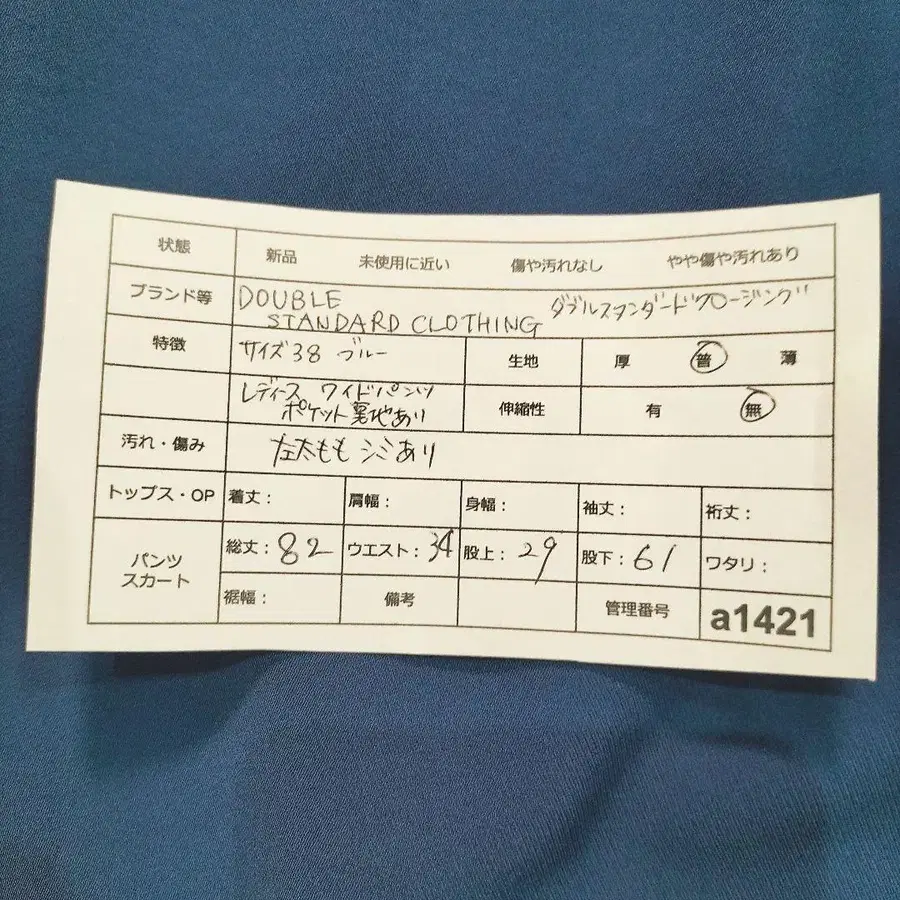 状態 新品 未使用に近い 傷や汚れなし やや傷や汚れあり
ブランド等 DOUBLE STANDARD CLOTHING ダブルスタンダードクロージング
特徴 サイズ38 ブルー 生地 厚 普 薄
レディース ワイドパンツ 伸縮性 有 無
ポケット裏地あり
汚れ・傷み 左太もも シミあり
トップス・OP 着丈: 肩幅: 身幅: 袖丈: 裄丈:
パンツ スカート 総丈:82 ウエスト:34 股上:29 股下:61 ワタリ:
裾幅: 備考 管理番号 a1421